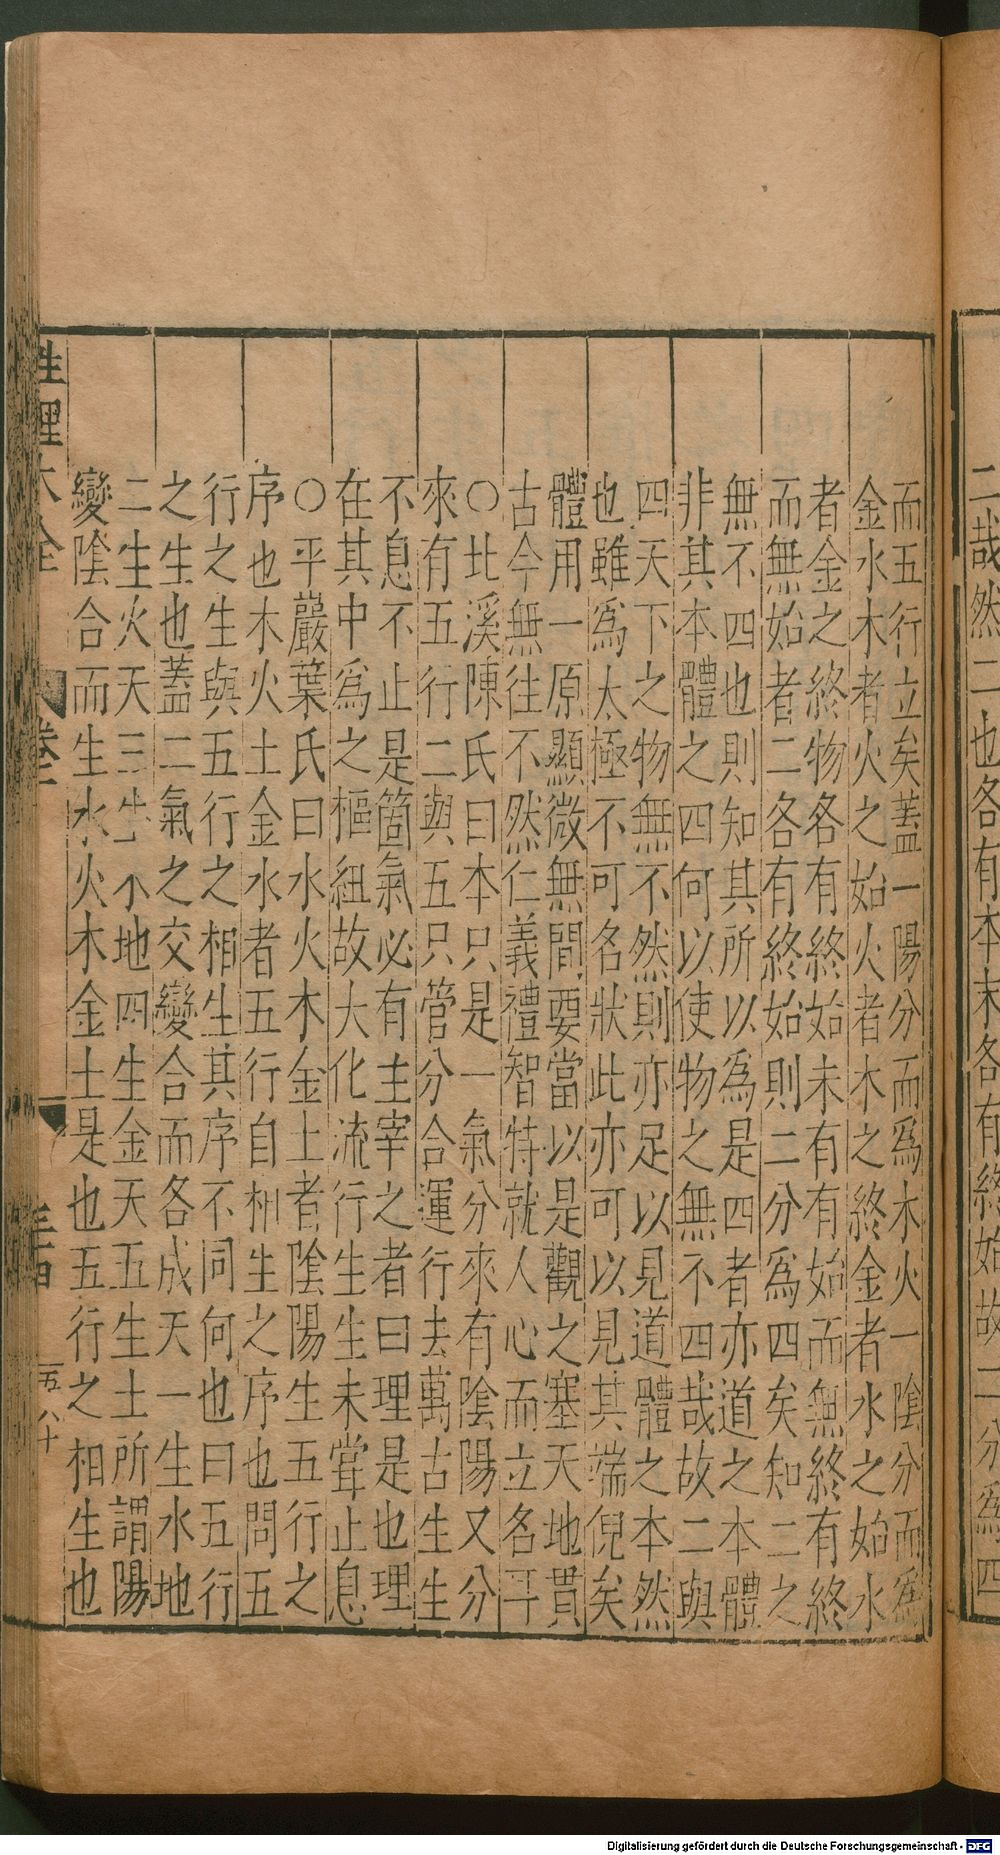 二哉然二也各有本末各有終始故二分爲四
而五行立矣蓋一陽分而爲木火一陰分而爲
金水木者火之始火者木之終金者水之始水
者金之終物各有終始未有有始而無終有終
而無始者二各有終始則二分爲四矣知二之
無不四也則知其所以爲是四者亦道之本體
非其本體之四何以使物之無不四哉故二與
四天下之物無不然則亦足以見道體之本然
也雖爲太極不可名狀此亦可以見其端倪矣
體用一原顯微無間要當以是觀之塞天地貫
古今無往不然仁義禮智特就人心而立名耳
○北溪陳氏曰本只是一氣分來有陰陽又分
來有五行二與五只管分合運行去萬古生生
不息不止是箇氣必有主宰之者曰理是也理
在其中爲之樞紐故大化流行生生未甞止息
○平巖葉氏曰水火木金土者陰陽生五行之
序也木火土金水者五行自相生之序也問五
行之生與五行之相生其序不同何也曰五行
之生也蓋二氣之交變合而各成天一生水地
二生火天三生木地四生金天五生土所謂陽
變陰合而生水火木金土是也五行之相生也
性理大全
卷一
三十四
五八十
Digitalisierung gefördert durch die Deutsche Forschungsgemeinschaft - DFG